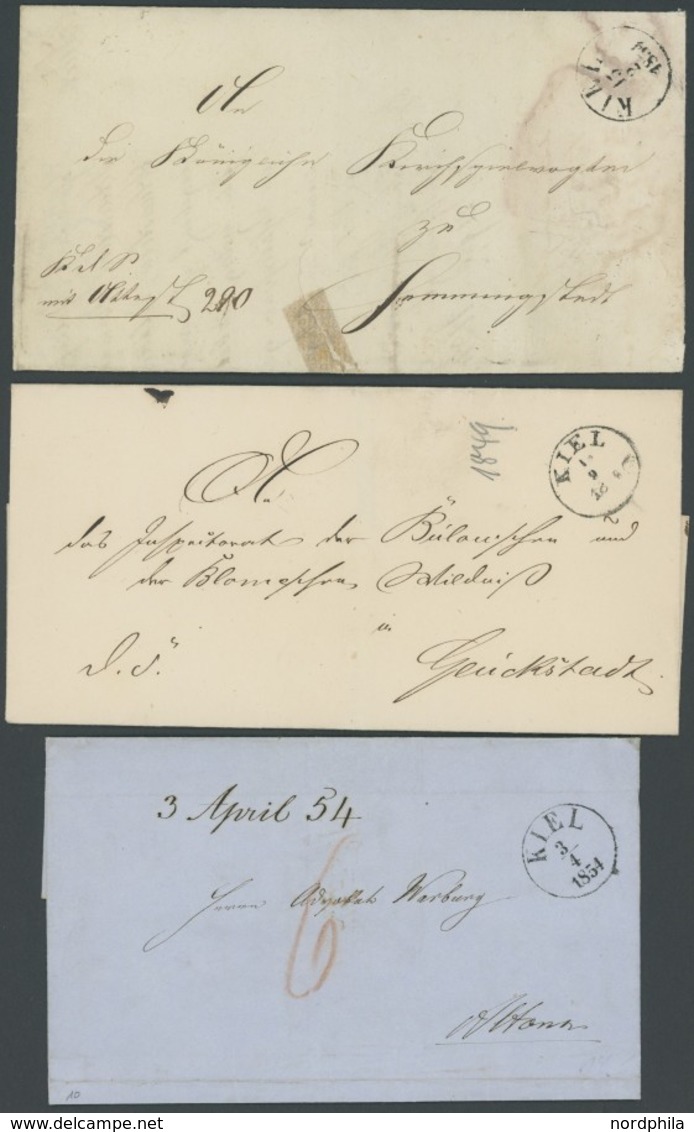 An
die Königliche Kirchspielvogtei
zu
Hemmingstedt
K d S
mit Attest 290
KIEL
1849
An
das Inspectorat der Bülowschen und
der Blomeschen Wildniß
in
D. S.
Glückstadt
KIEL
9
3 April 54
KIEL
3/4
1854
Herrn Advokat Warburg
6
Altona
10
www.delcampe.net
nordphila